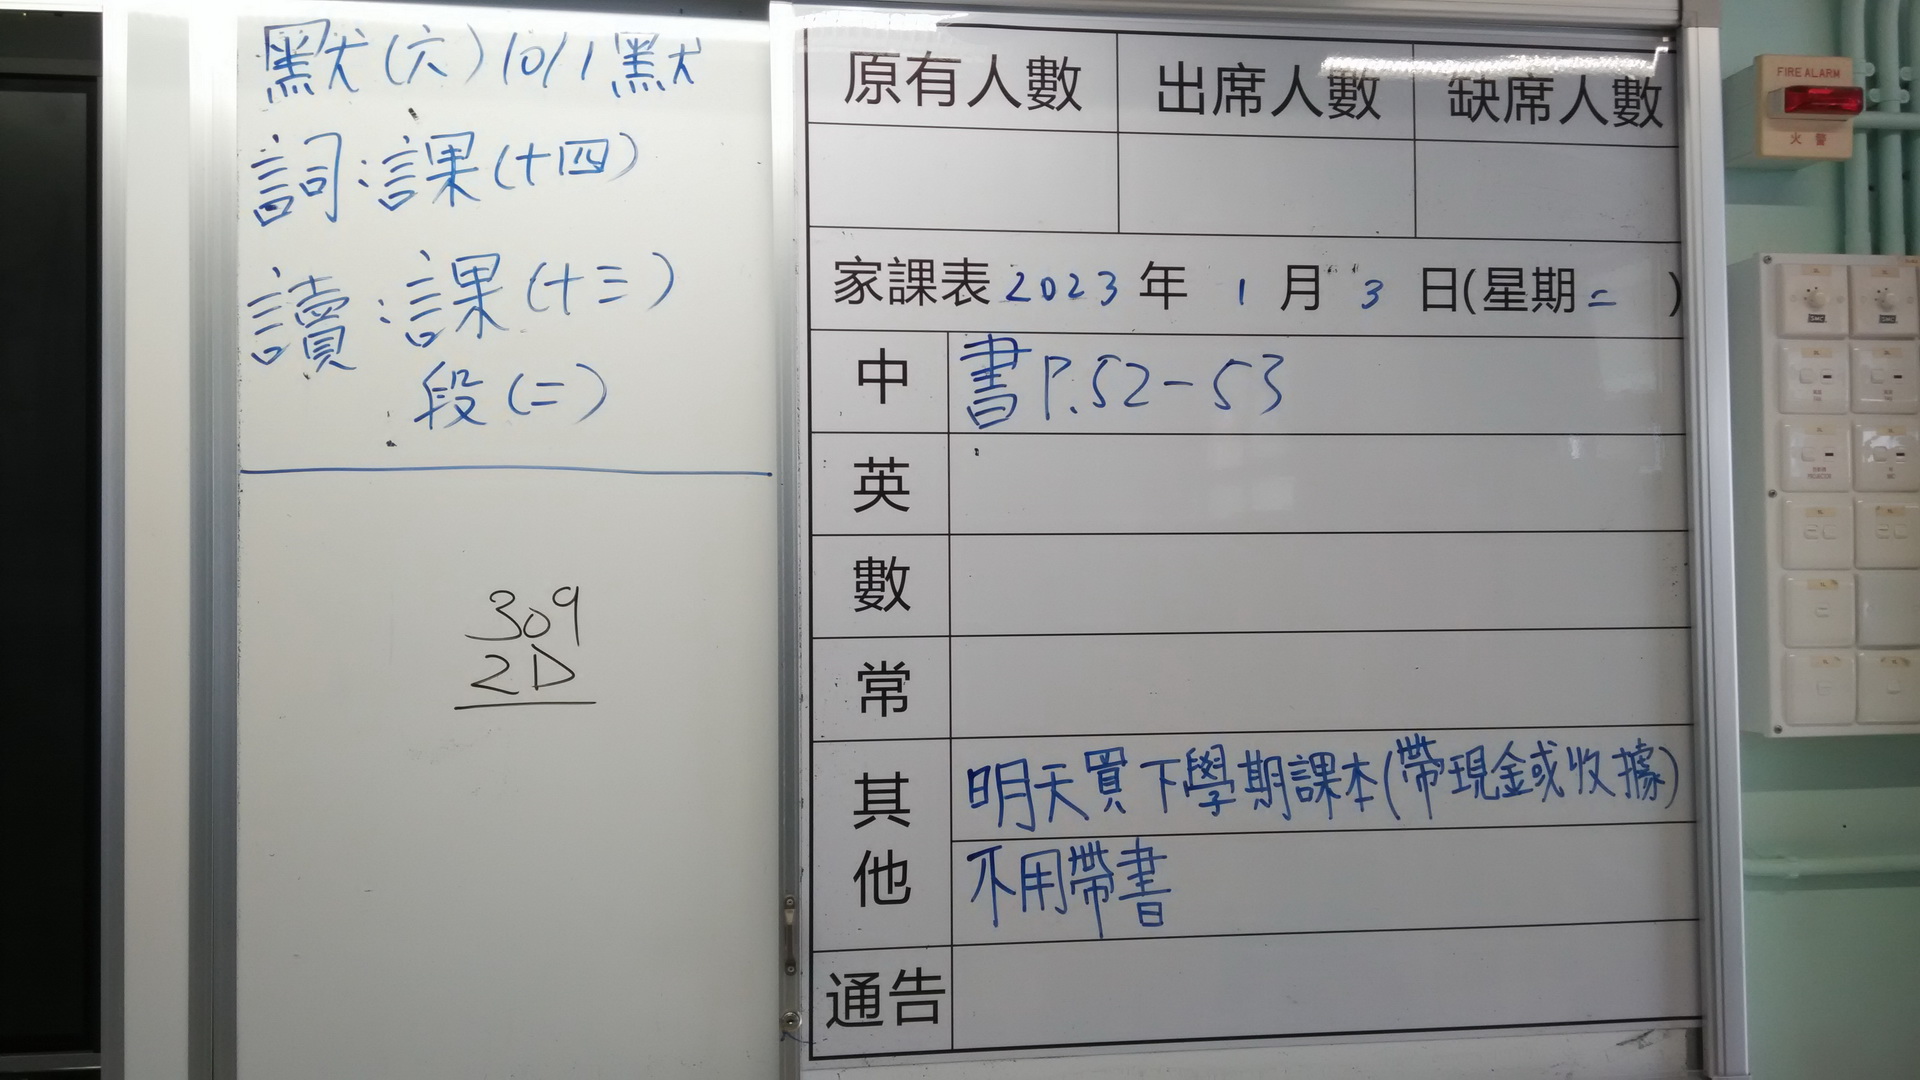 默(六)10/1默
詞:課(十四)
讀:課(十三)
段(二)
309
2D
原有人數 出席人數 缺席人數
家課表 2023 年 1 月 3 日(星期二)
中 書P.52-53
英
數
常
其他 明天買下學期課本(帶現金或收據)
不用帶書
通告
FIRE ALARM
火警